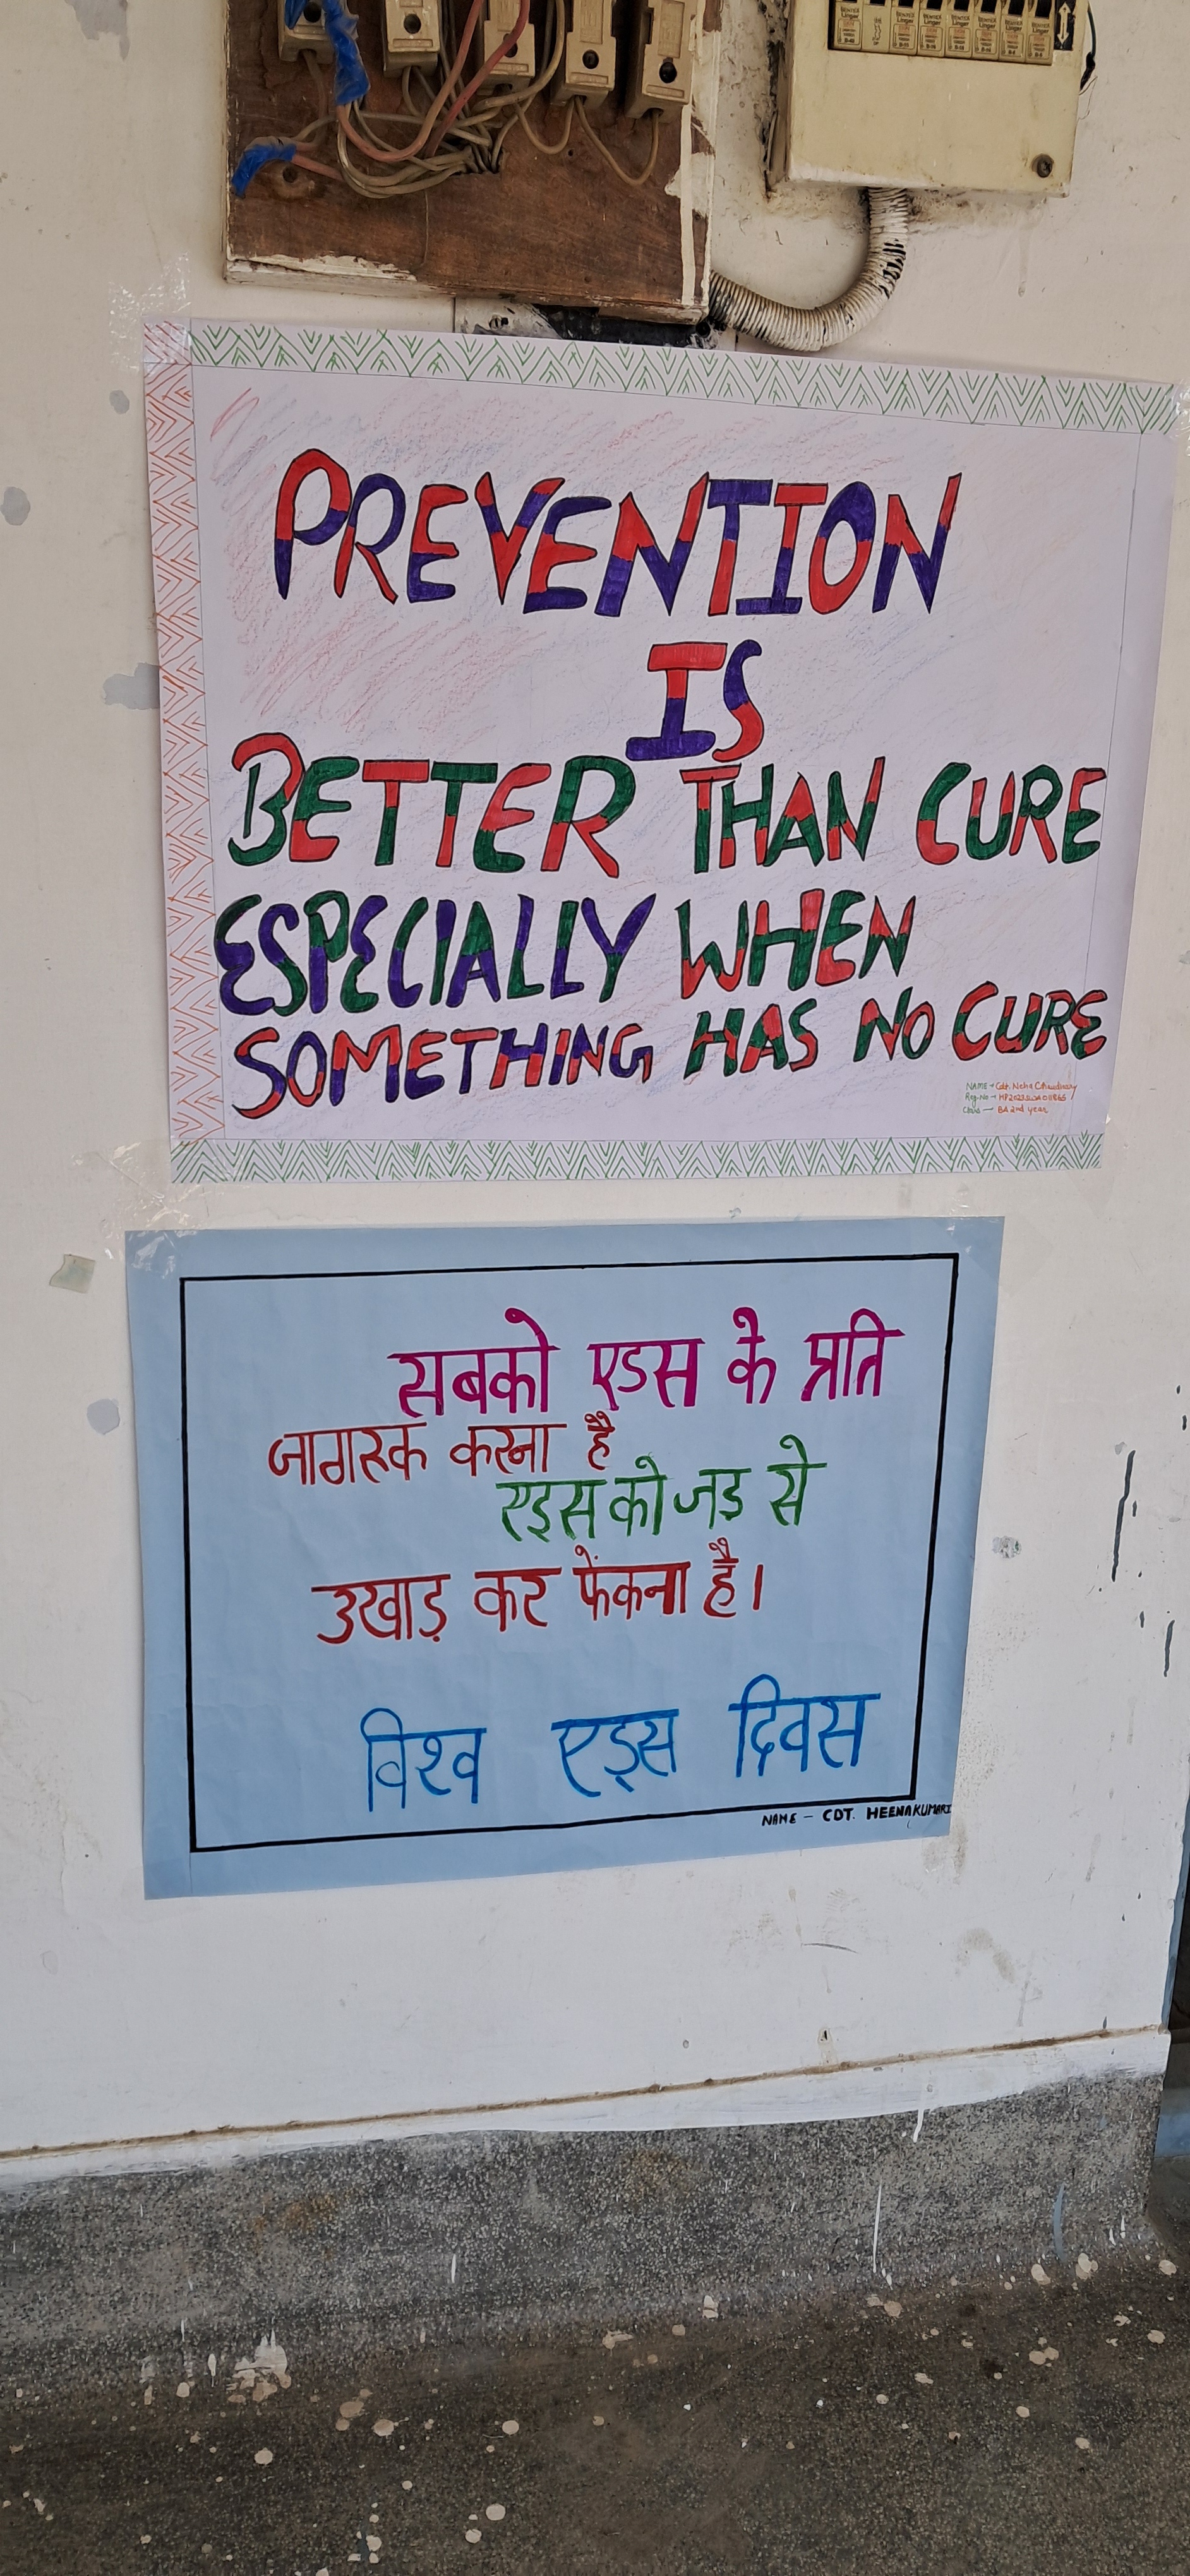 PREVENTION
IS
BETTER THAN CURE
ESPECIALLY WHEN
SOMETHING HAS NO CURE
NAME - Cdt. Neha Chaudhary
Reg. No -
Class - BA 2nd year
सबको एडस के प्रति
जागरूक करना है
एइस को जड़ से
उखाड़ कर फेंकना है।
विश्व एड्स दिवस
NAME - CDT. HEENAKUMARI